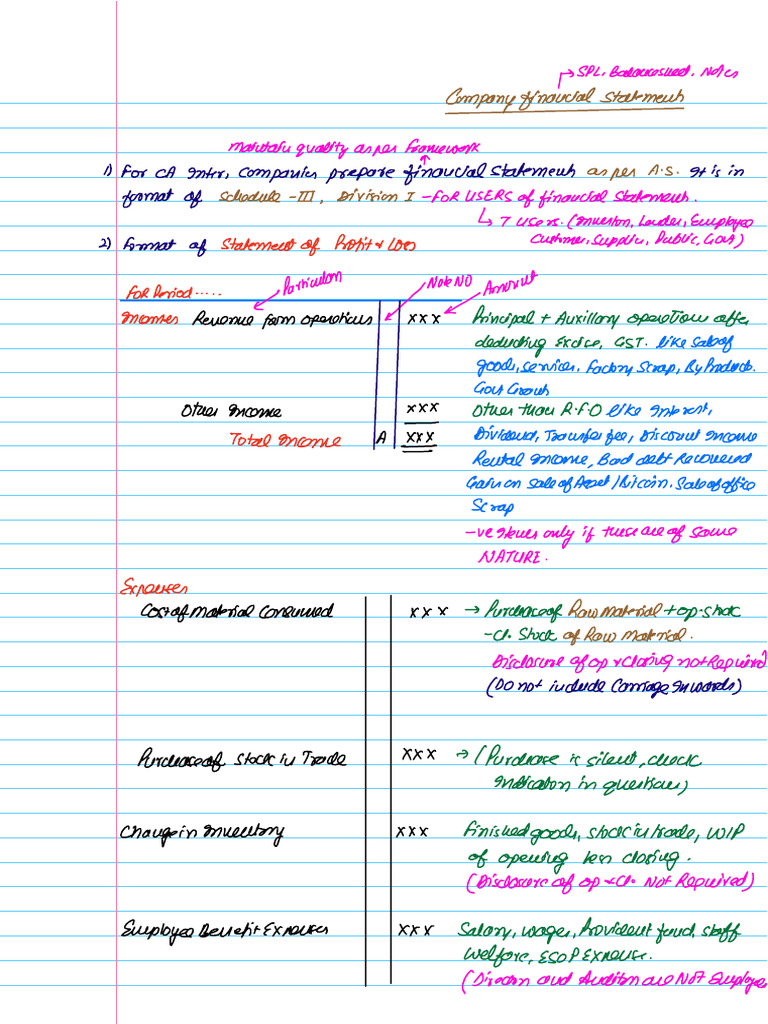 SPL. Balancesheet. Notes
Company financial statements
maintain quality as per framework
1) For CA Inter, Companies prepare financial statements as per A.S. It is in
format of Schedule-III, Division I - FOR USERS of financial statements.
7 users. (Investors, Lender, Employees
Customer, Supplier, Public, Govt)
2) Format of Statement of Profit & Loss
FOR Period..... Particulars Note NO Amount
Incomes Revenue form operations XXX Principal + Auxillary operations after
deducting Excise, GST. like Sale of
goods, services, factory Scrap, By Products.
Govt Grants
Other Income XXX Other than R.F.O like Interest,
Total Income A XXX Dividend, Transfer fee, Discount Income
Rental Income, Bad debt Recovered
Gain on sale of Asset / Bitcoin. Sale of office
Scrap
-ve items only if these are of same
NATURE.
Expenses
Cost of Material Consumed XXX → Purchase of Raw material + op. stock
- Cl. Stock of Raw material.
Disclosure of op & closing not Required
(Do not include Carriage Inwards)
Purchase of Stock in Trade XXX → (Purchase is silent, check
indication in questions)
Change in Inventory XXX Finished goods, stock in trade, WIP
of opening less closing.
(Disclosure of op & cl. Not Required)
Employee Benefit Expenses XXX Salary, wages, Provident fund, staff
welfare, ESOP Expense.
(Directors and Auditors are NOT Employee